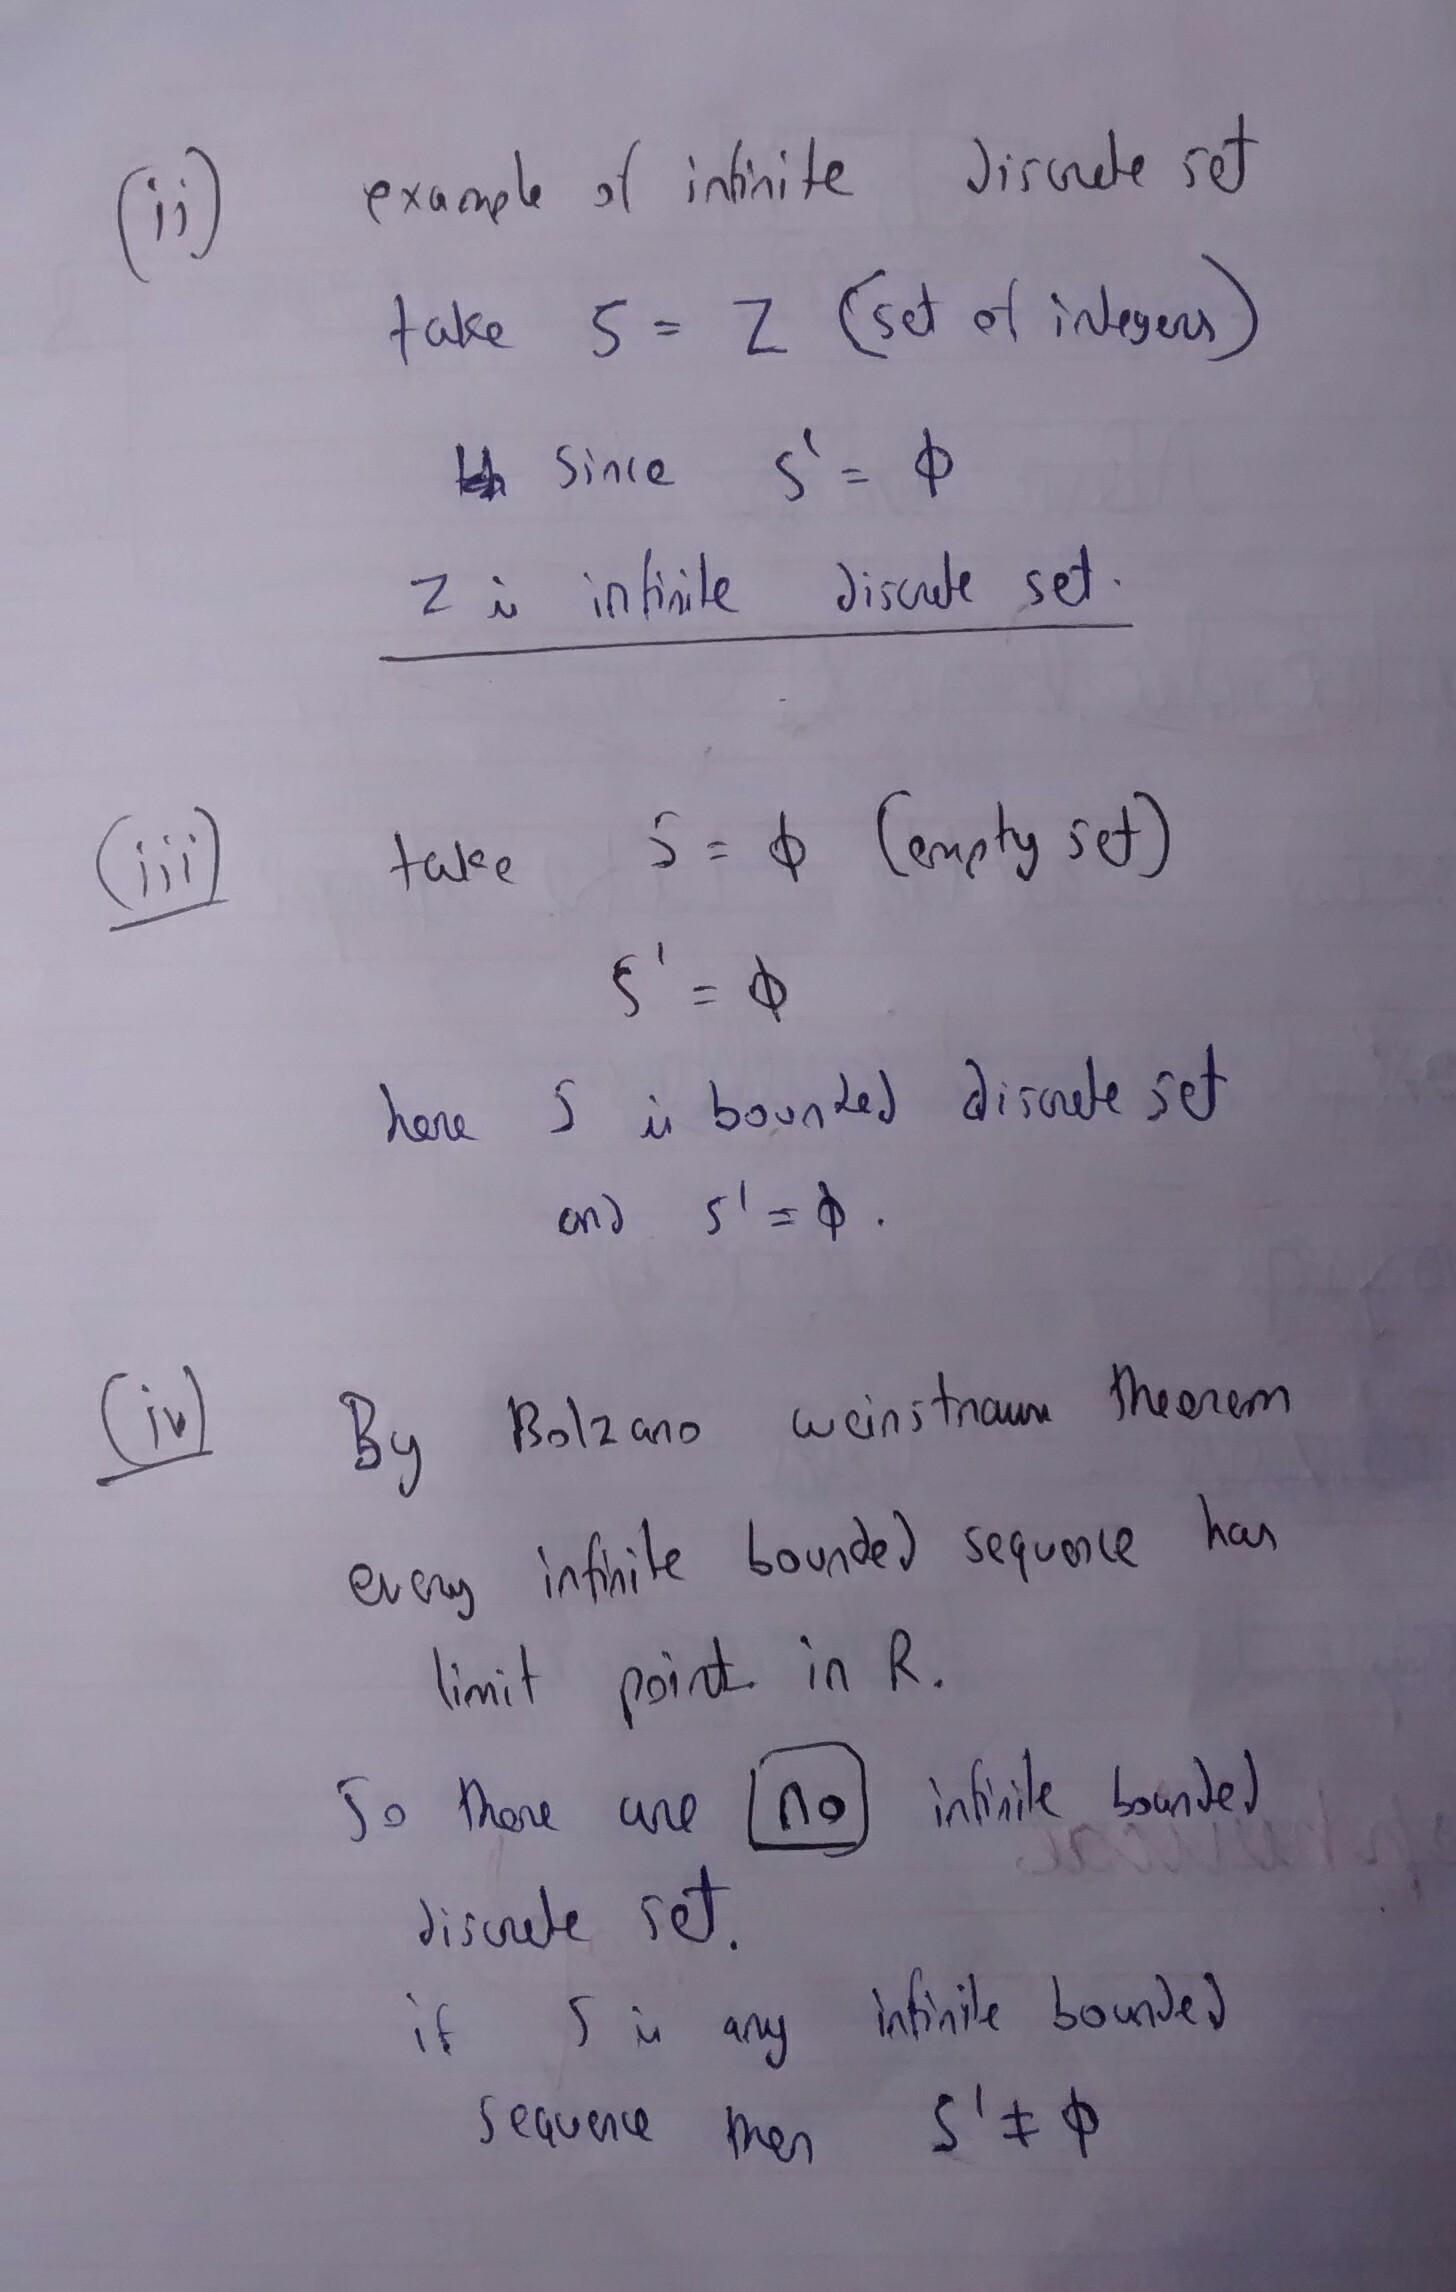 (ii) example of infinite discrete set
take S = Z (set of integers)
since S' = ϕ
Z is infinite discrete set.
(iii) take S = ϕ (empty set)
S' = ϕ
here S is bounded discrete set
and S' = ϕ.
(iv) By Bolzano weinstrauss theorem
every infinite bounded sequence has
limit point in R.
So there are no infinite bounded
discrete set.
if S is any infinite bounded
sequence then S' ≠ ϕ